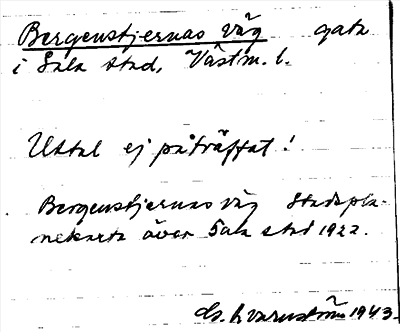 Bergenstjernas väg gata
i Sala stad, Västm. l.
Uttal ej påträffat!
Bergenstjernas väg Stadspla-
nekarta över Sala stad 1922.
1943.